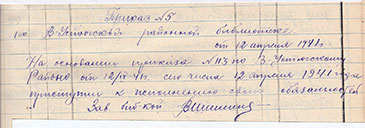 Приказ №5
по В-Устюгской районной библиотеке
от 12 апреля 1941 г.
На основании приказа №113 по В-Устюгскому
Районо от 12/IV-41г. сего числа 12 апреля 1941 года
приступил к исполнению своих обязанностей
Зав. биб-кой